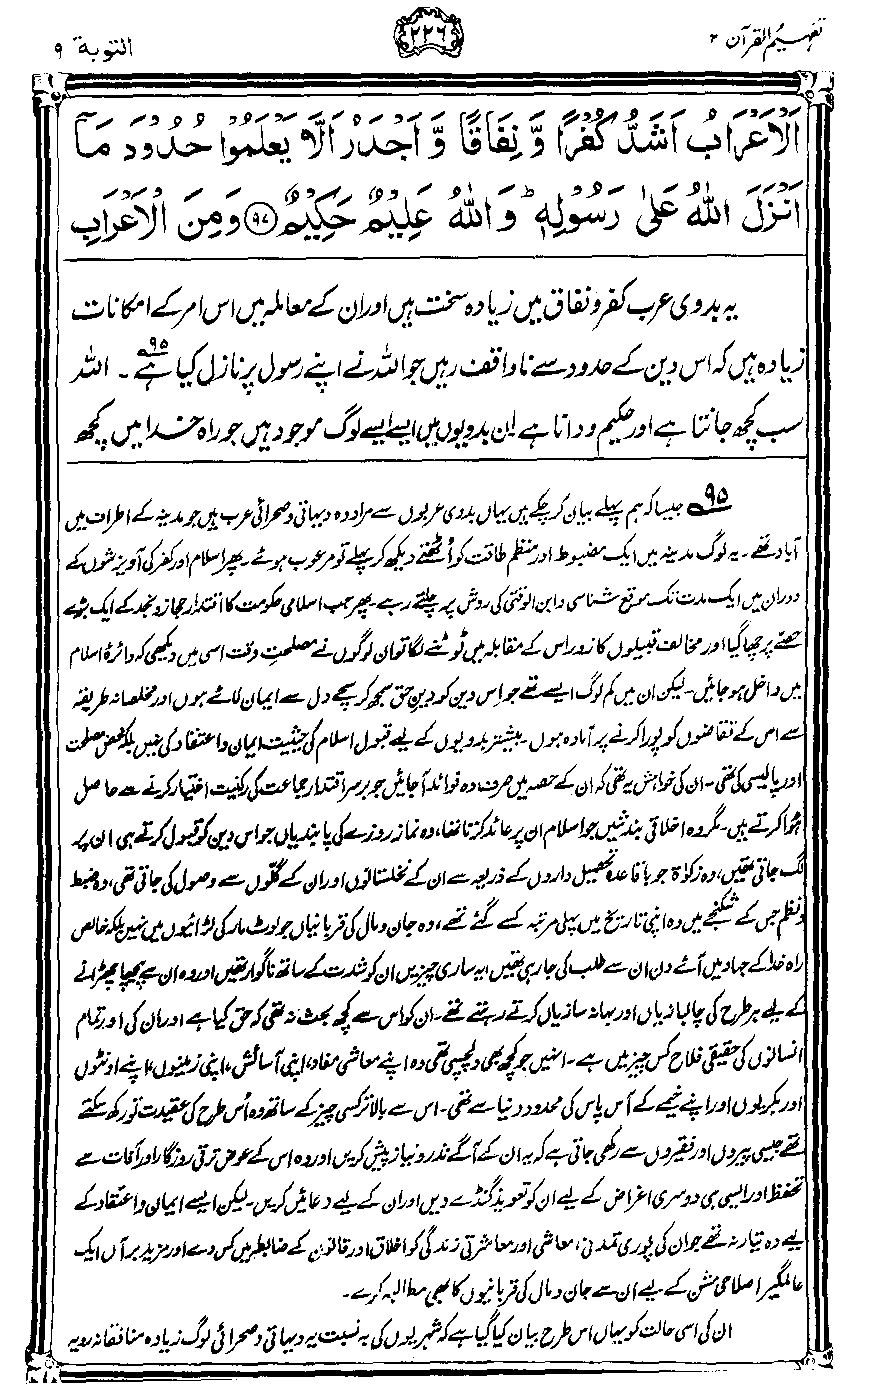 تفہیم القرآن ۲
۲۲۶
التوبۃ ۹
اَلْاَعْرَابُ اَشَدُّ كُفْرًا وَّ نِفَاقًا وَّ اَجْدَرُ اَلَّا يَعْلَمُوْا حُدُوْدَ مَاۤ
اَنْزَلَ اللّٰهُ عَلٰى رَسُوْلِهٖؕ وَ اللّٰهُ عَلِيْمٌ حَكِيْمٌ ﴿۹۷﴾ وَمِنَ الْاَعْرَابِ
یہ بدوی عرب کفر و نفاق میں زیادہ سخت ہیں اور ان کے معاملہ میں اس امر کے امکانات
زیادہ ہیں کہ اس دین کے حدود سے ناواقف رہیں جو اللہ نے اپنے رسول پر نازل کیا ہے۹۵۔ اللہ
سب کچھ جانتا ہے اور حکیم و دانا ہے۔ ان بدویوں میں ایسے ایسے لوگ موجود ہیں جو راہ خدا میں کچھ
۹۵ جیسا کہ ہم پہلے بیان کر چکے ہیں یہاں بدوی عربوں سے مراد وہ دیہاتی و صحرائی عرب ہیں جو مدینہ کے اطراف میں
آباد تھے۔ یہ لوگ مدینہ میں ایک مضبوط اور منظم طاقت کو اُٹھتے دیکھ کر پہلے تو مرعوب ہوئے۔ پھر اسلام اور کفر کی آویزشوں کے
دوران میں ایک مدت تک موقع شناسی و ابن الوقتی کی روش پر چلتے رہے۔ پھر جب اسلامی حکومت کا اقتدار حجاز و نجد کے ایک بڑے
حصے پر چھا گیا اور مخالف قبیلوں کا زور اس کے مقابلہ میں ٹوٹنے لگا تو ان لوگوں نے مصلحتِ وقت اسی میں دیکھی کہ دائرۂ اسلام
میں داخل ہو جائیں۔ لیکن ان میں کم لوگ ایسے تھے جو اس دین کو دینِ حق سمجھ کر سچے دل سے ایمان لائے ہوں اور مخلصانہ طریقہ
سے اس کے تقاضوں کو پورا کرنے پر آمادہ ہوں۔ بیشتر بدویوں کے لیے قبول اسلام کی حیثیت ایمان و اعتقاد کی نہیں بلکہ محض مصلحت
اور پالیسی کی تھی۔ ان کی خواہش یہ تھی کہ ان کے حصہ میں صرف وہ فوائد آ جائیں جو برسراقتدار جماعت کی رکنیت اختیار کرنے سے حاصل
ہُوا کرتے ہیں۔ مگر وہ اخلاقی بندشیں جو اسلام ان پر عائد کرتا تھا، وہ نماز روزے کی پابندیاں جو اس دین کو قبول کرتے ہی ان پر
لگ جاتی تھیں، وہ زکوٰۃ جو باقاعدہ تحصیل داروں کے ذریعہ سے ان کے نخلستانوں اور ان کے گلّوں سے وصول کی جاتی تھی، وہ ضبط
و نظم جس کے شکنجے میں وہ اپنی تاریخ میں پہلی مرتبہ کسے گئے تھے، وہ جان و مال کی قربانیاں جو لوٹ مار کی لڑائیوں میں نہیں بلکہ خالص
راہ خدا کے جہاد میں آئے دن ان سے طلب کی جا رہی تھیں، یہ ساری چیزیں ان کو شدت کے ساتھ ناگوار تھیں اور وہ ان سے پیچھا چھڑانے
کے لیے ہر طرح کی چالبازیاں اور بہانہ سازیاں کرتے رہتے تھے۔ ان کو اس سے کچھ بحث نہ تھی کہ حق کیا ہے اور ان کی اور تمام
انسانوں کی حقیقی فلاح کس چیز میں ہے۔ انہیں جو کچھ بھی دلچسپی تھی وہ اپنے معاشی مفاد، اپنی آسائش، اپنی زمینوں، اپنے اونٹوں
اور بکریوں اور اپنے خیمے کے آس پاس کی محدود دنیا سے تھی۔ اس سے بالاتر کسی چیز کے ساتھ وہ اُس طرح کی عقیدت تو رکھ سکتے
تھے جیسی پیروں اور فقیروں سے رکھی جاتی ہے کہ یہ ان کے آگے نذر و نیاز پیش کریں اور وہ اس کے عوض ترقی روزگار اور آفات سے
تحفظ اور ایسی ہی دوسری اغراض کے لیے ان کو تعویذ گنڈے دیں اور ان کے لیے دعائیں کریں۔ لیکن ایسے ایمان و اعتقاد کے
لیے وہ تیار نہ تھے جو ان کی پوری تمدنی، معاشی اور معاشرتی زندگی کو اخلاق اور قانون کے ضابطہ میں کس دے اور مزید برآں ایک
عالمگیر اصلاحی مشن کے لیے ان سے جان و مال کی قربانیوں کا بھی مطالبہ کرے۔
ان کی اسی حالت کو یہاں اس طرح بیان کیا گیا ہے کہ شہریوں کی بہ نسبت یہ دیہاتی و صحرائی لوگ زیادہ منافقانہ رویہ